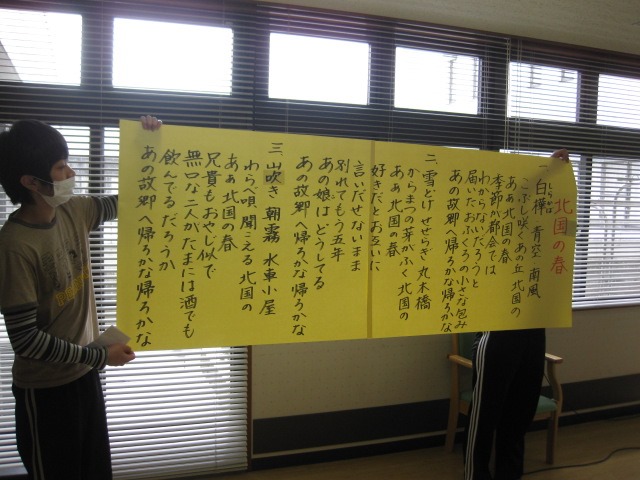 北国の春
一、白樺 青空 南風
こぶし咲くあの丘 北国の
あぁ北国の春
季節が都会では
わからないだろうと
届いたおふくろの小さな包み
あの故郷へ帰ろかな帰ろかな
二、雪どけ せせらぎ 丸木橋
からまつの芽がふく 北国の
あぁ 北国の春
好きだとお互いに
言いだせないまま
別れてもう五年
あの娘はどうしてる
あの故郷へ帰ろかな帰ろかな
三、山吹き 朝霧 水車小屋
わらべ唄聞こえる 北国の
あぁ 北国の春
兄貴もおやじ似で
無口な二人がたまには酒でも
飲んでるだろうか
あの故郷へ帰ろかな帰ろかな